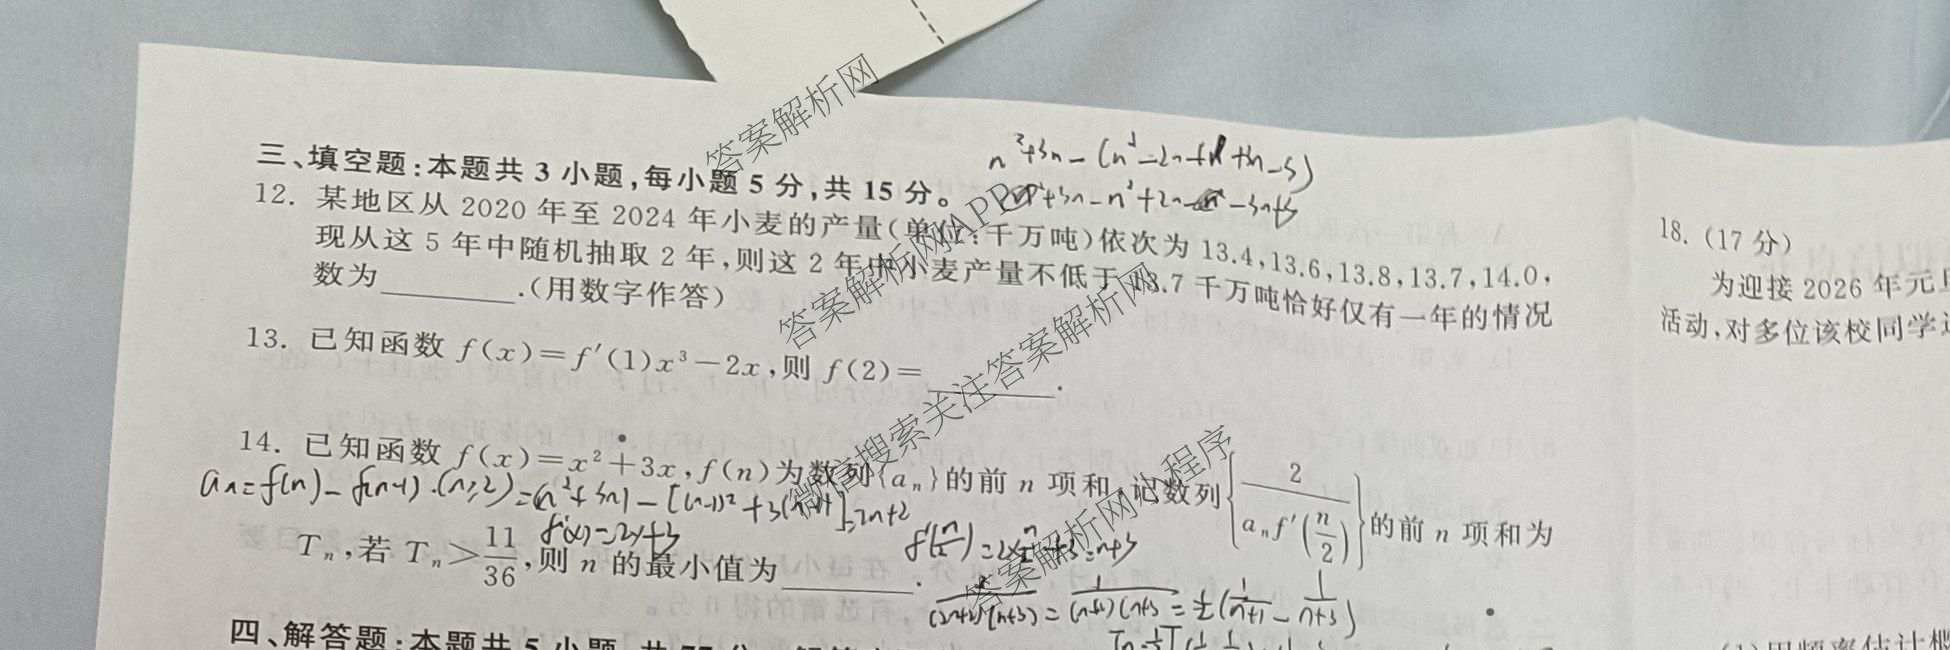 三、填空题:本题共 3 小题,每小题 5 分,共 15 分。
12. 某地区从 2020 年至 2024 年小麦的产量(单位:千万吨)依次为 13.4,13.6,13.8,13.7,14.0,
现从这 5 年中随机抽取 2 年,则这 2 年中小麦产量不低于 13.7 千万吨恰好仅有一年的情况
数为________.(用数字作答)
13. 已知函数 f(x)=f′(1)x³−2x,则 f(2)=________.
14. 已知函数 f(x)=x²+3x,f(n)为数列{aₙ}的前 n 项和,记数列{2/(aₙf′(n/2))}的前 n 项和为
aₙ=f(n)−f(n-1).(n≥2)=(n²+3n)−[(n-1)²+3(n-1)]=2n+2
f'(x)=2x+3
f'(n/2)=2×n/2+3=n+3
Tₙ,若 Tₙ>11/36,则 n 的最小值为________.
2/((2n+2)(n+3))=1/((n+1)(n+3))=½(1/(n+1)−1/(n+3))
四、解答题:本题共 5 小题
18. (17 分)
为迎接 2026 年元旦
活动,对多位该校同学
答案解析网
答案解析网APP
微信搜索关注答案解析网
答案解析网微信小程序